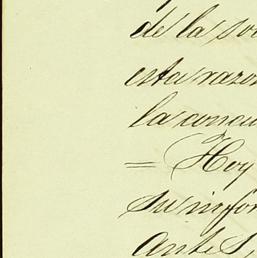 de la so
esta razo
la concu
= Hoy
su infor
ante S,